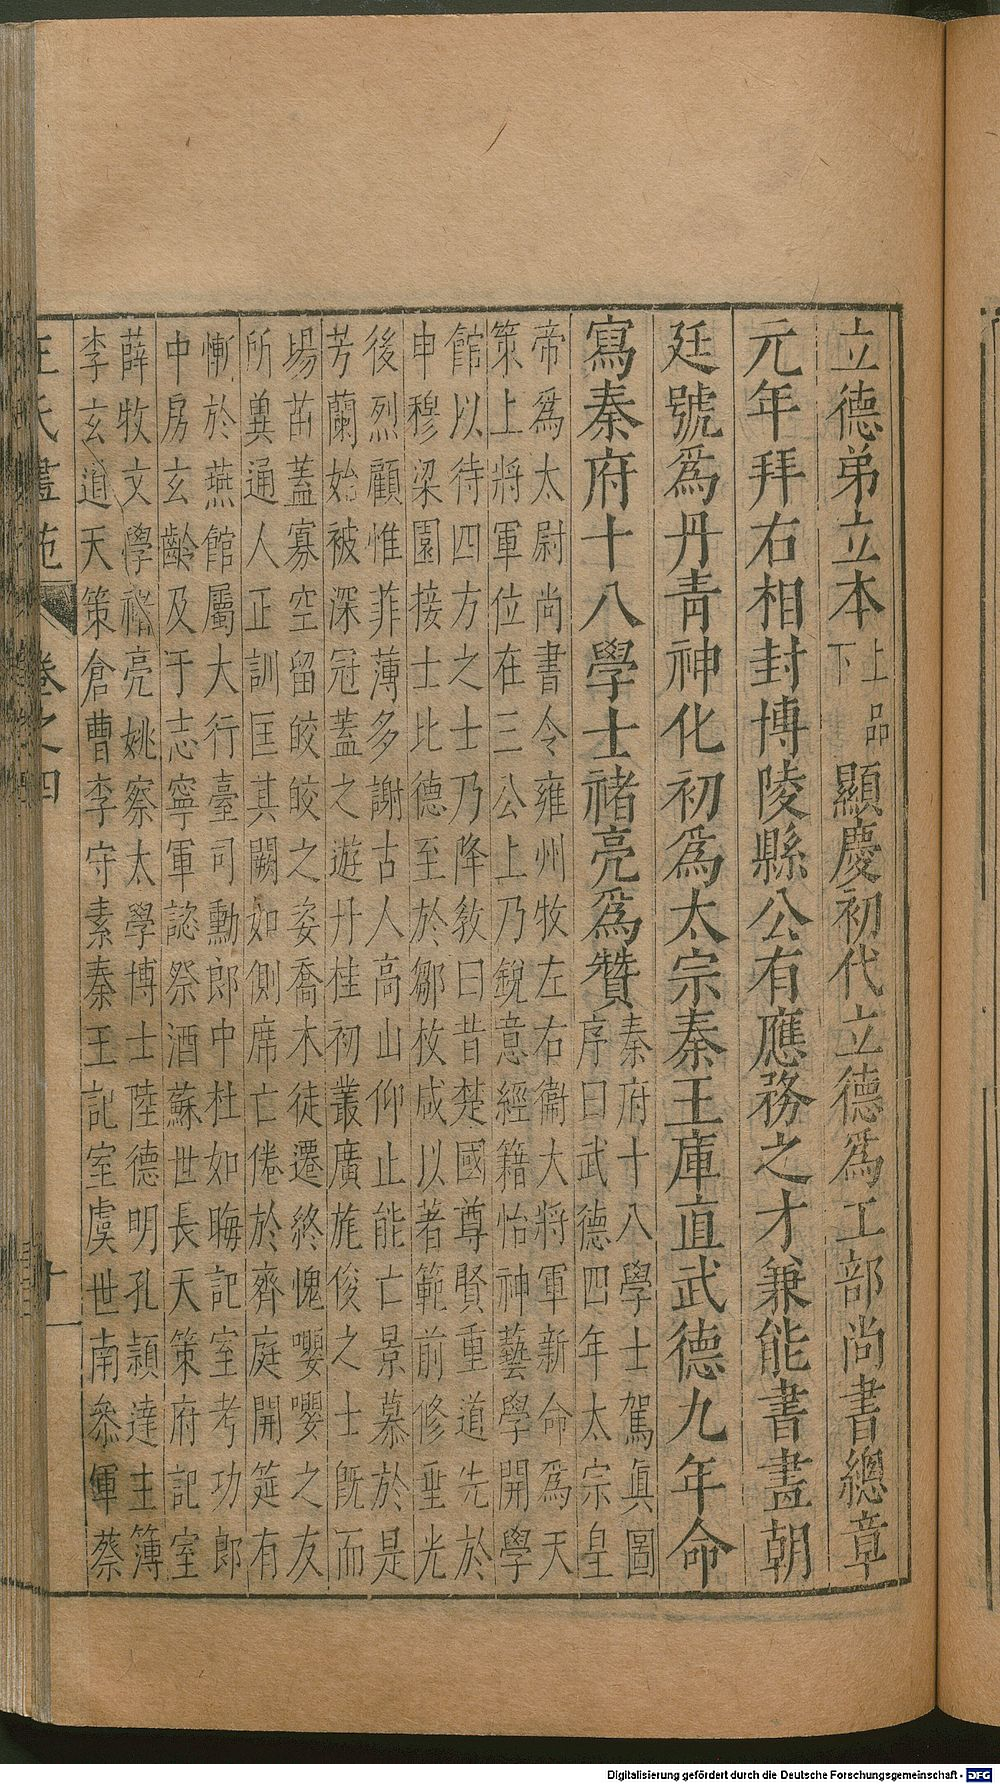 立德弟立本上品下顯慶初代立德爲工部尚書總章
元年拜右相封博陵縣公有應務之才兼能書畫朝
廷號爲丹青神化初爲太宗秦王庫直武德九年命
寫秦府十八學士褚亮爲贊秦府十八學士駕眞圖
序曰武德四年太宗皇
帝爲太尉尚書令雍州牧左右衞大將軍新命爲天
策上將軍位在三公上乃銳意經籍怡神藝學開學
館以待四方之士乃降教曰昔楚國尊賢重道先於
申穆梁園接士比德至於鄒枚咸以著範前修垂光
後烈顧惟菲薄多謝古人高山仰止能亡景慕於是
芳蘭始被深冠蓋之遊丹桂初叢廣旄俊之士旣而
場苗蓋寡空留皎皎之姿喬木徒遷終愧嚶嚶之友
所冀通人正訓匡其闕如側席亡倦於齊庭開筵有
慚於燕館屬大行臺司勳郎中杜如晦記室考功郎
中房玄齡及于志寧軍諮祭酒蘇世長天策府記室
薛牧文學褚亮姚察太學博士陸德明孔穎達主簿
李玄道天策倉曹李守素秦王記室虞世南叅軍蔡
王氏畫苑 卷之四 十一
Digitalisierung gefördert durch die Deutsche Forschungsgemeinschaft - DFG